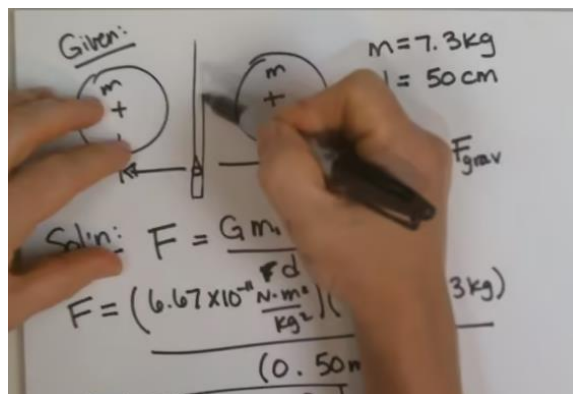 Given:
m + m + m = 7.3kg
= 50cm
Fgrav
Sol'n: F = Gm
d
F = (6.67×10⁻¹¹ N·m²/kg²)( 3kg)
(0.50m